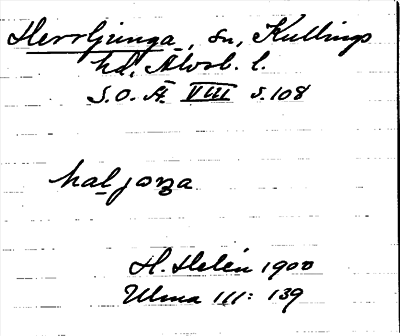 Herrljunga, sn, Kullings
hd, Älvsb. l.
S.O.Ä. VIII s. 108
haljoṉa
H. Helén 1900
Ulma 111: 139